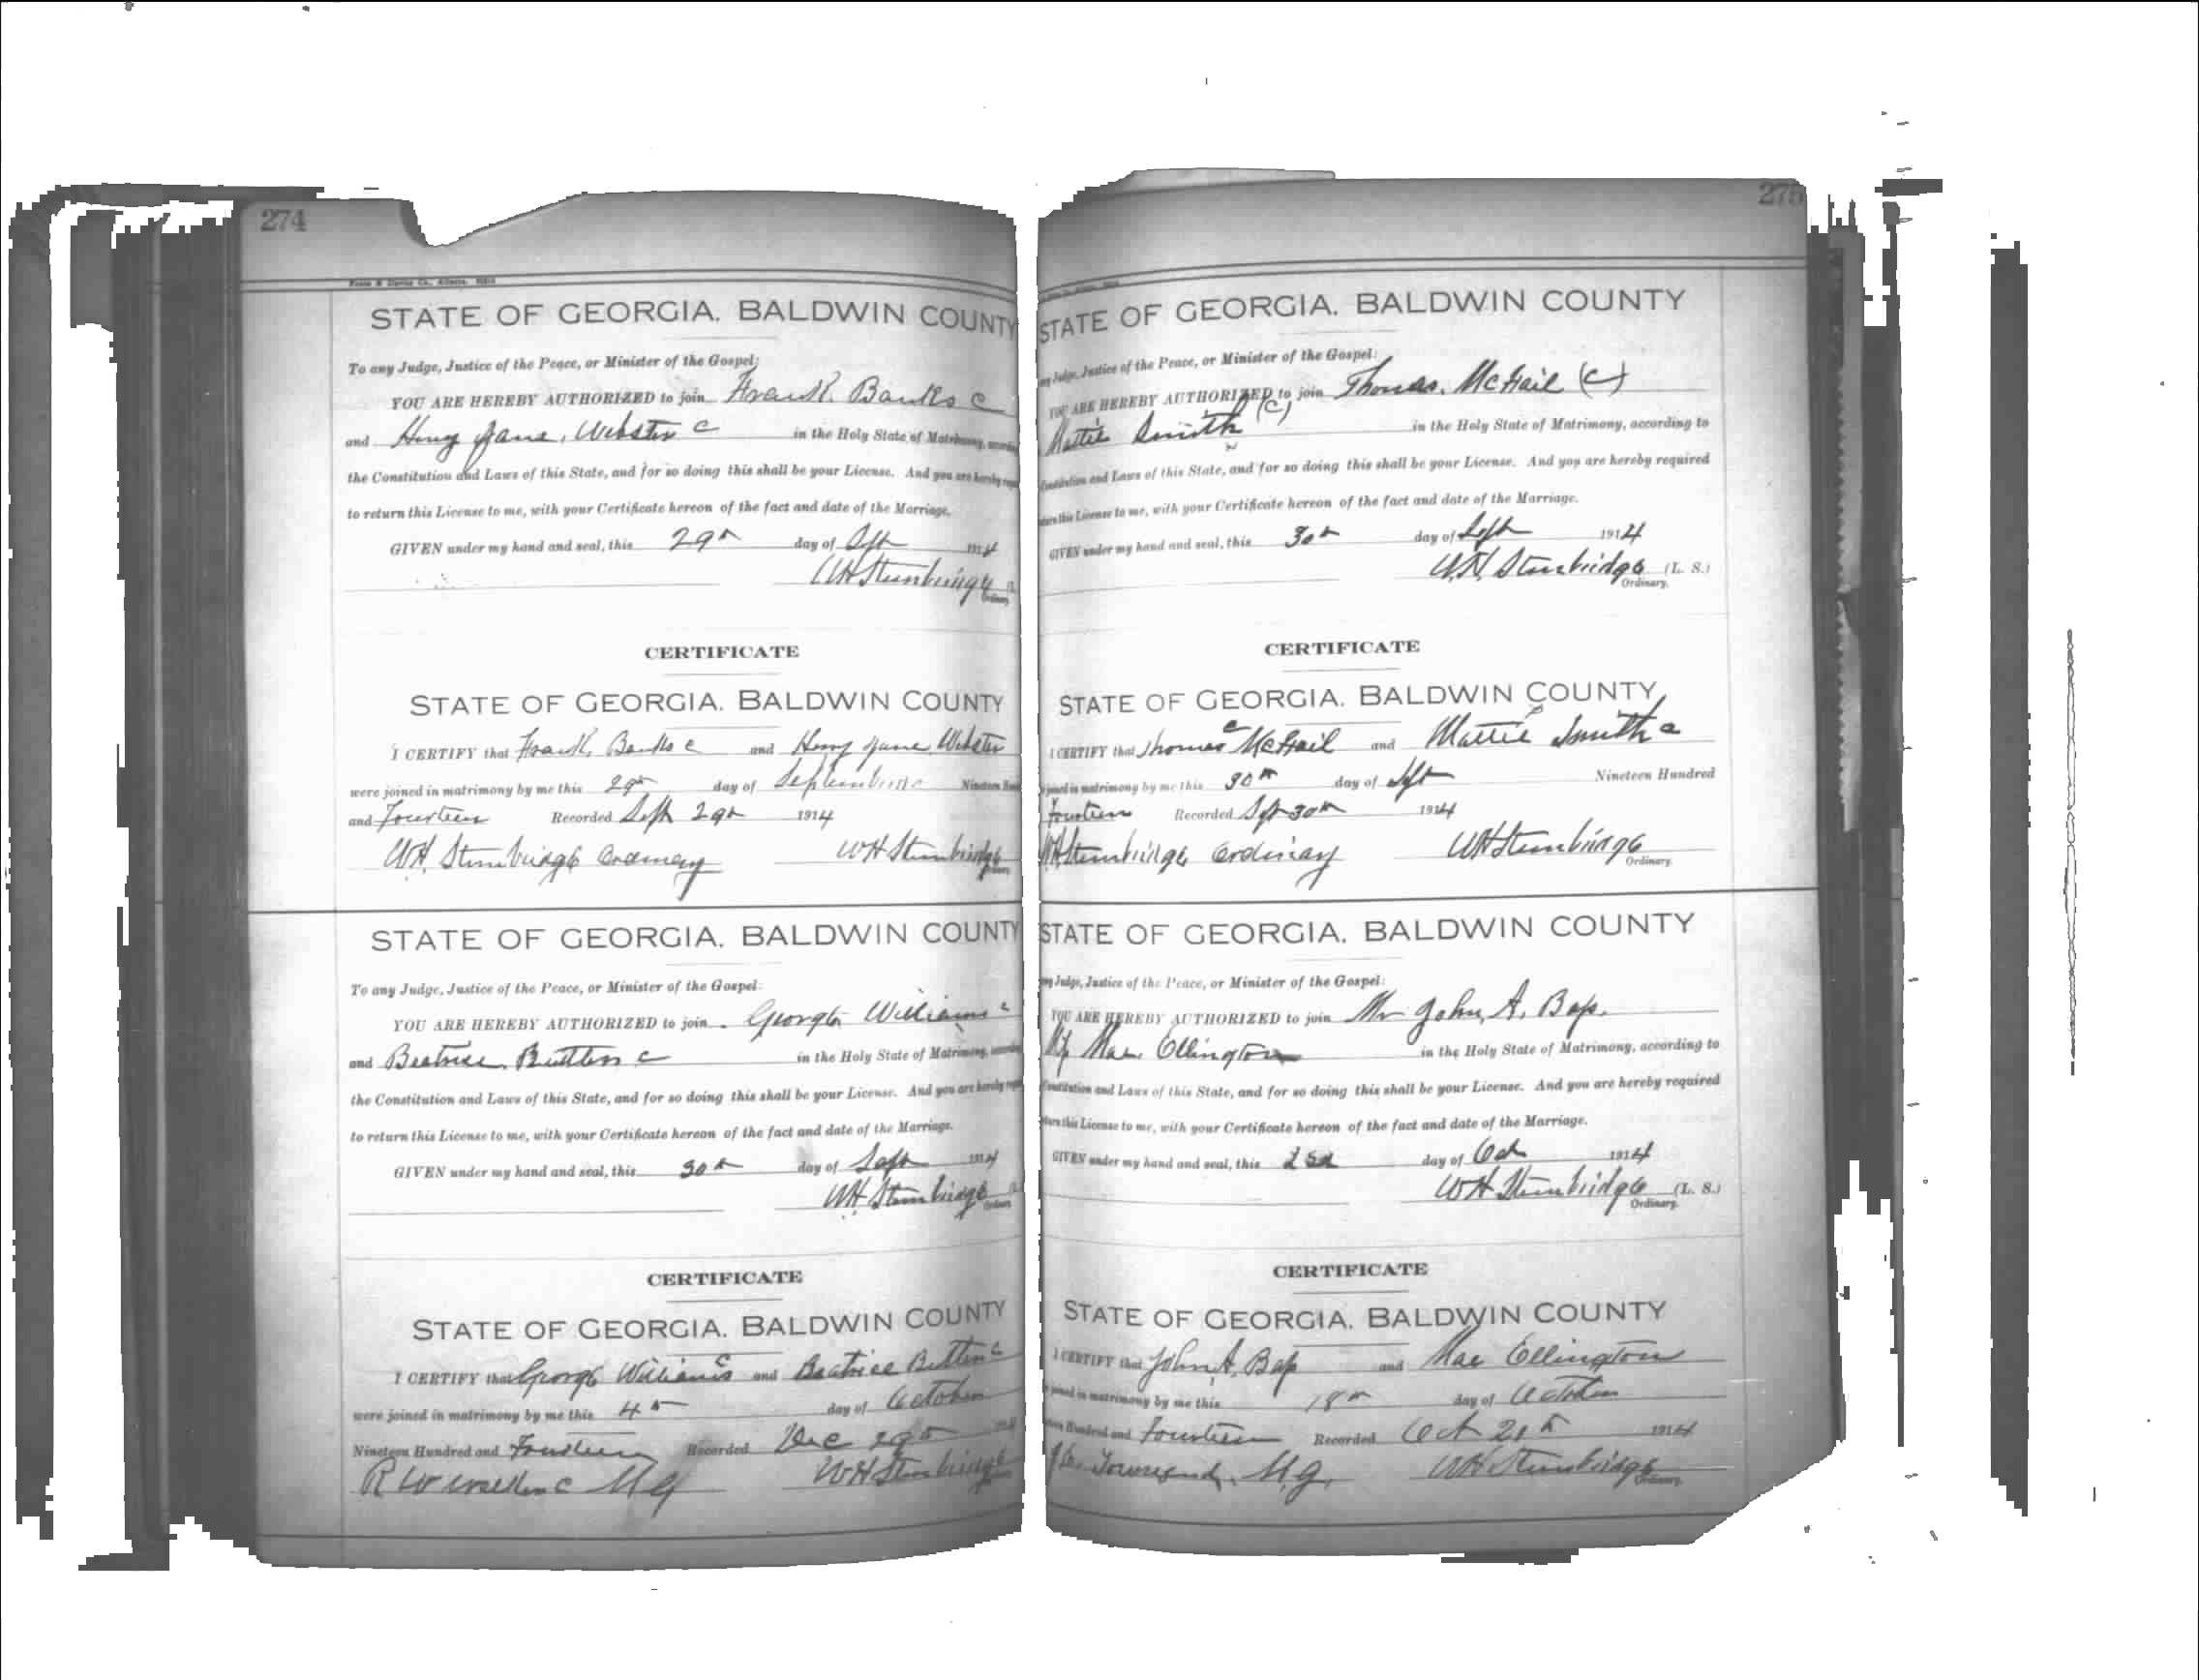 274
STATE OF GEORGIA. BALDWIN COUNTY
To any Judge, Justice of the Peace, or Minister of the Gospel:
YOU ARE HEREBY AUTHORIZED to join Frank. Banks c
and Jane, Webster c in the Holy State of Matrimony,
the Constitution and Laws of this State, and for so doing this shall be your License. And you are hereby
to return this License to me, with your Certificate hereon of the fact and date of the Marriage.
GIVEN under my hand and seal, this 29th day of Sept 1914
WH Stembridge
Ordinary
CERTIFICATE
STATE OF GEORGIA. BALDWIN COUNTY
I CERTIFY that Frank. Banks c and Jane Webster
were joined in matrimony by me this 29th day of September Nineteen
and Fourteen Recorded Sept 29th 1914
WH. Stembridge Ordinary WH Stembridge
Ordinary
STATE OF GEORGIA. BALDWIN COUNTY
To any Judge, Justice of the Peace, or Minister of the Gospel:
YOU ARE HEREBY AUTHORIZED to join George Williams c
and Beatrice c in the Holy State of Matrimony,
the Constitution and Laws of this State, and for so doing this shall be your License. And you are hereby
to return this License to me, with your Certificate hereon of the fact and date of the Marriage.
GIVEN under my hand and seal, this 30th day of Sept 1914
WH Stembridge
Ordinary
CERTIFICATE
STATE OF GEORGIA. BALDWIN COUNTY
I CERTIFY that George Williams c and Beatrice c
were joined in matrimony by me this 4th day of October
Nineteen Hundred and Fourteen Recorded Dec 29th
R W c MG WH Stembridge
275
STATE OF GEORGIA. BALDWIN COUNTY
Judge, Justice of the Peace, or Minister of the Gospel:
YOU ARE HEREBY AUTHORIZED to join Thomas. (C)
Mattie Smith (C) in the Holy State of Matrimony, according to
and Laws of this State, and for so doing this shall be your License. And you are hereby required
this License to me, with your Certificate hereon of the fact and date of the Marriage.
GIVEN under my hand and seal, this 30th day of Sept 1914
W.H. Stembridge (L. S.)
Ordinary.
CERTIFICATE
STATE OF GEORGIA. BALDWIN COUNTY
I CERTIFY that Thomas c and Mattie Smith c
in matrimony by me this 30th day of Sept Nineteen Hundred
Fourteen Recorded Sept 30th 1914
WH Stembridge Ordinary WH Stembridge
Ordinary
STATE OF GEORGIA. BALDWIN COUNTY
Judge, Justice of the Peace, or Minister of the Gospel:
YOU ARE HEREBY AUTHORIZED to join Mr John, A. Bass.
Mae. Ellington in the Holy State of Matrimony, according to
and Laws of this State, and for so doing this shall be your License. And you are hereby required
this License to me, with your Certificate hereon of the fact and date of the Marriage.
GIVEN under my hand and seal, this day of Oct 1914
WH Stembridge (L. S.)
Ordinary.
CERTIFICATE
STATE OF GEORGIA. BALDWIN COUNTY
I CERTIFY that John, A. Bass and Mae Ellington
joined in matrimony by me this 18th day of October
Hundred and Fourteen Recorded Oct 21st 1914
Townsend, M.G. WH Stembridge
Ordinary.